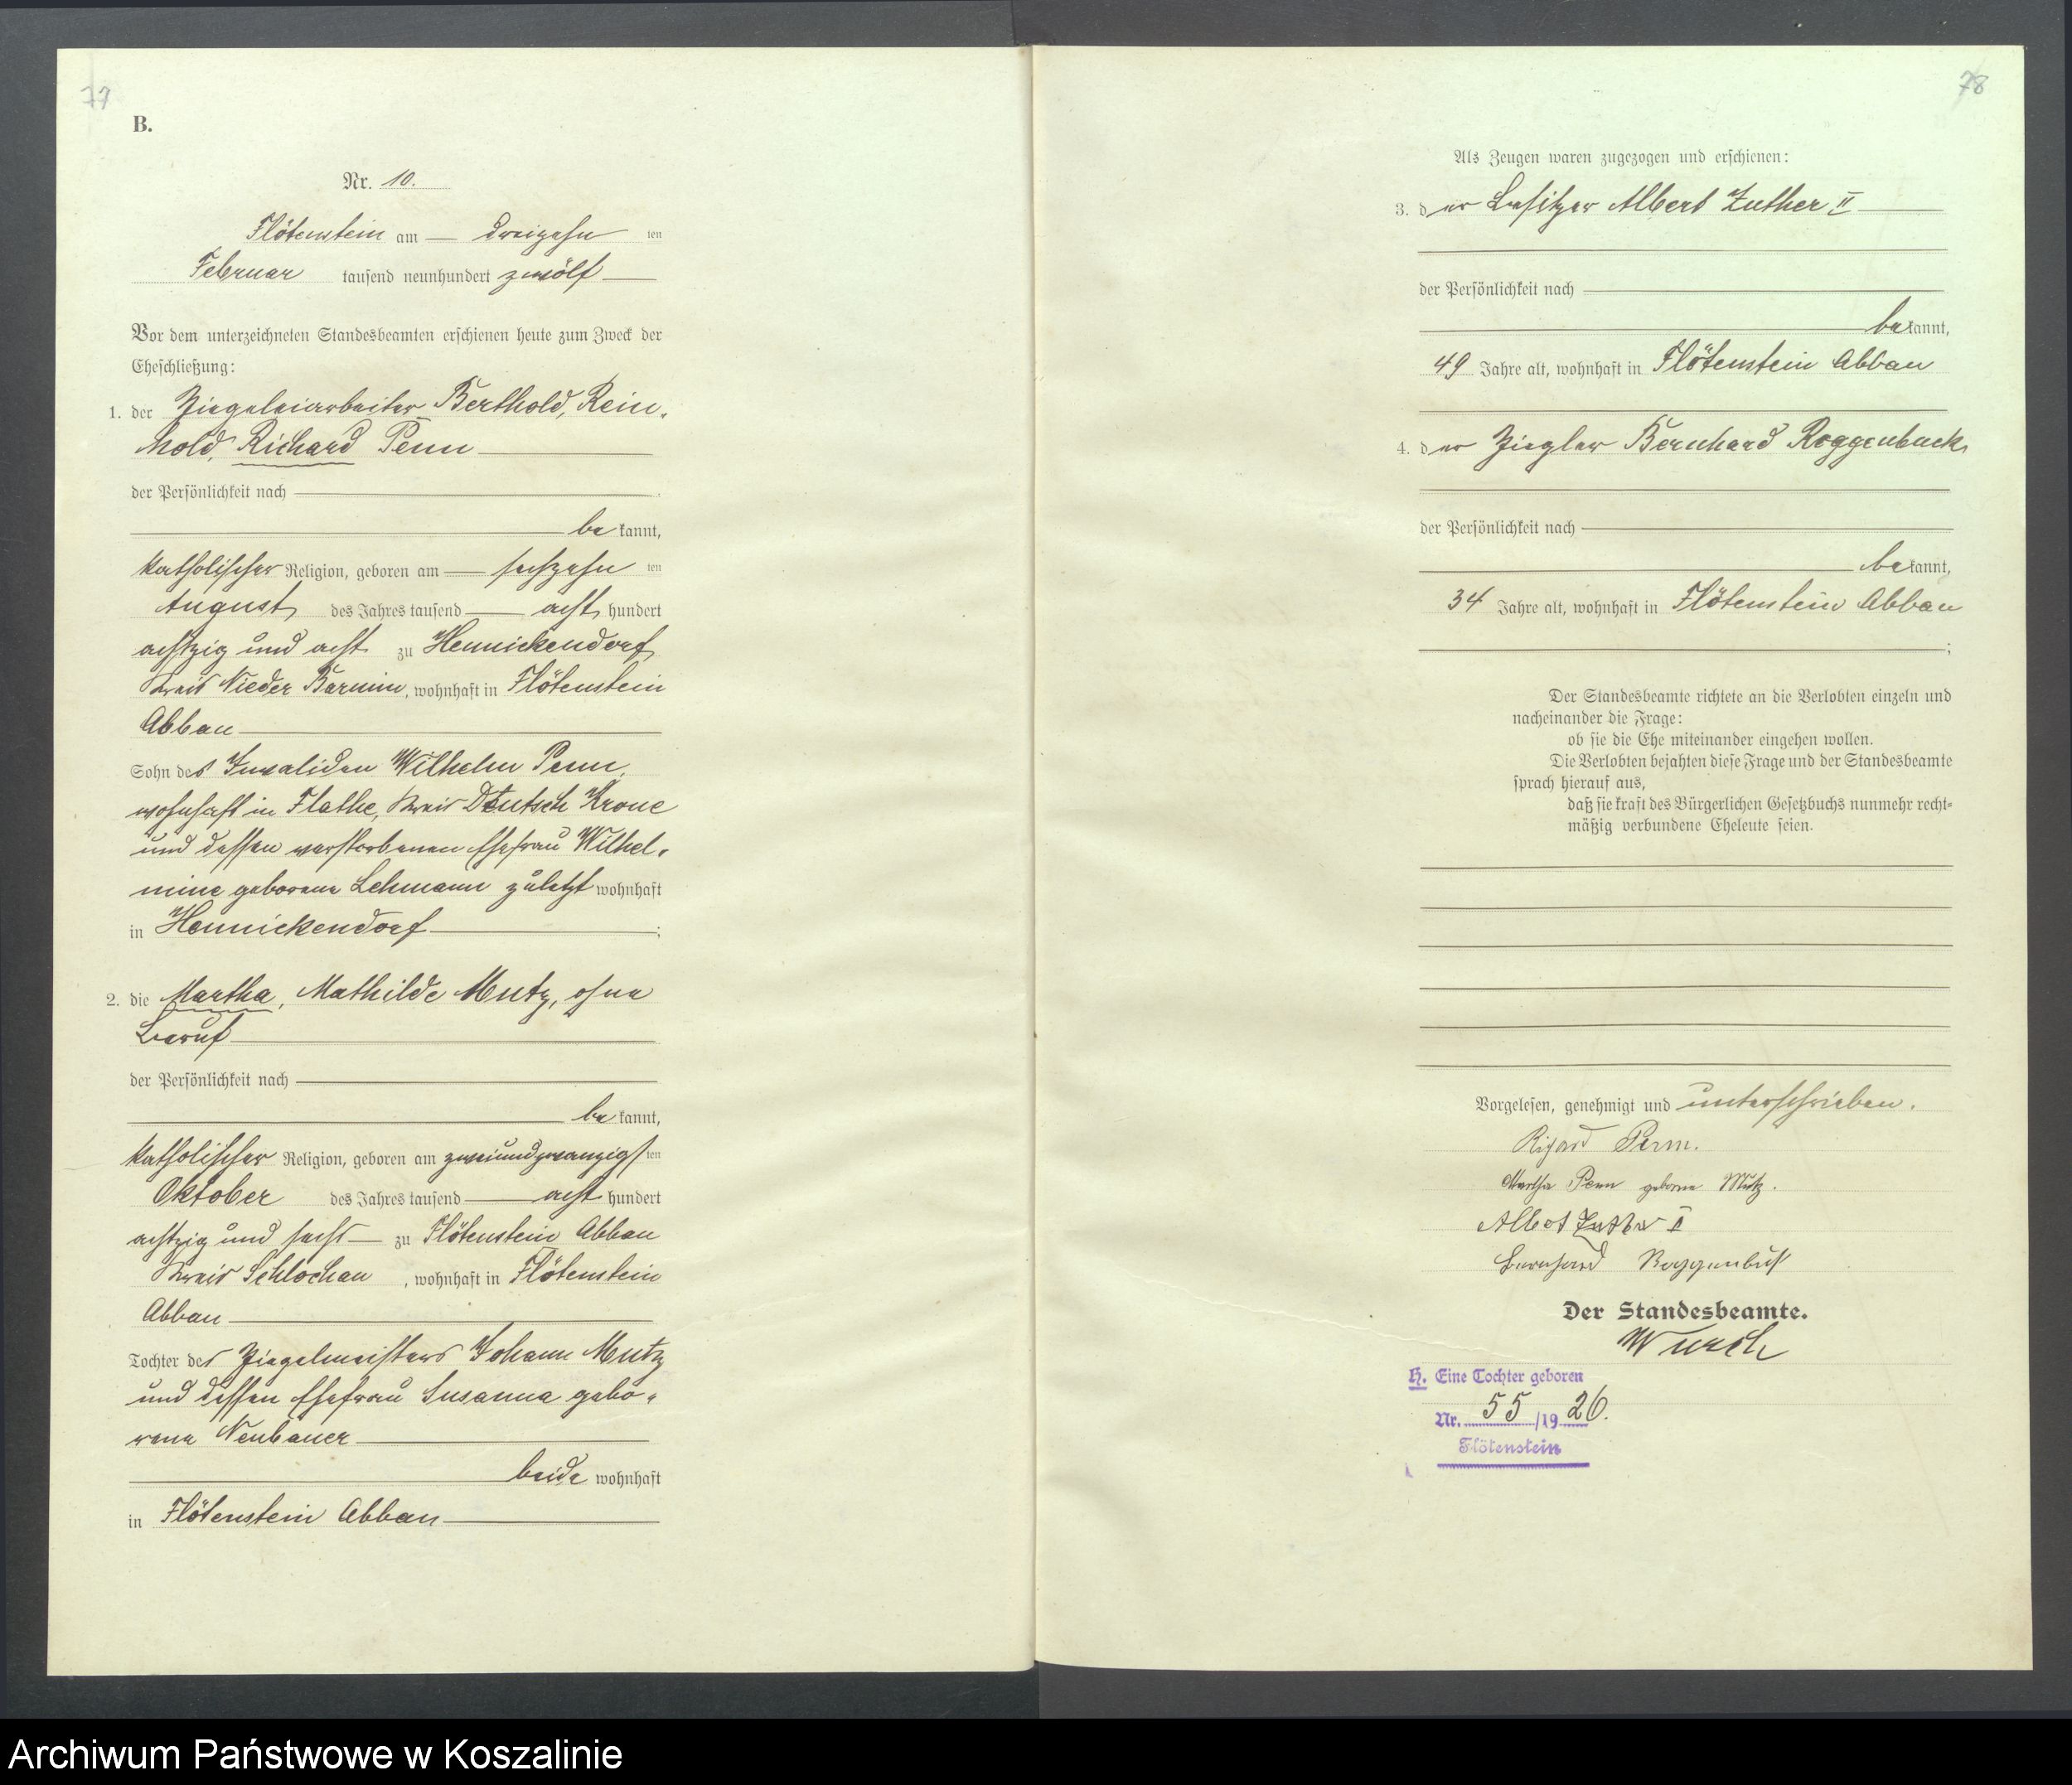 77
B.
Nr. 10.
Flötenstein am dreizehn ten
Februar tausend neunhundert zwölf
Vor dem unterzeichneten Standesbeamten erschienen heute zum Zweck der
Eheschließung:
1. der Ziegeleiarbeiter Berthold, Rein-
hold, Richard Penn
der Persönlichkeit nach
be kannt,
katholischer Religion, geboren am sechzehn ten
August des Jahres tausend acht hundert
achtzig und acht zu Hennickendorf
Kreis Nieder Barnim, wohnhaft in Flötenstein
Abbau
Sohn des Invaliden Wilhelm Penn,
wohnhaft in Flathe, Kreis Deutsch Krone
und dessen verstorbenen Ehefrau Wilhel-
mine geborene Lehmann zuletzt wohnhaft
in Hennickendorf ;
2. die Martha, Mathilde Mutz, ohne
Beruf
der Persönlichkeit nach
be kannt,
katholischer Religion, geboren am zweiundzwanzigsten
Oktober des Jahres tausend acht hundert
achtzig und sechs zu Flötenstein Abbau
Kreis Schlochau, wohnhaft in Flötenstein
Abbau
Tochter des Ziegelmeisters Johann Mutz
und dessen Ehefrau Susanna gebo-
rene Neubauer
beide wohnhaft
in Flötenstein Abbau
78
Als Zeugen waren zugezogen und erschienen:
3. der Besitzer Albert Zuther II
der Persönlichkeit nach
bekannt,
49 Jahre alt, wohnhaft in Flötenstein Abbau
4. der Ziegler Bernhard Roggenbuck,
der Persönlichkeit nach
bekannt,
34 Jahre alt, wohnhaft in Flötenstein Abbau
;
Der Standesbeamte richtete an die Verlobten einzeln und
nacheinander die Frage:
ob sie die Ehe miteinander eingehen wollen.
Die Verlobten bejahten diese Frage und der Standesbeamte
sprach hierauf aus,
daß sie kraft des Bürgerlichen Gesetzbuchs nunmehr recht-
mäßig verbundene Eheleute seien.
Vorgelesen, genehmigt und unterschrieben.
Richard Penn.
Martha Penn geborene Mutz.
Albert Zuther II
Bernhard Roggenbuck
Der Standesbeamte.
H. Eine Tochter geboren
Nr. 55/1926.
Flötenstein
Archiwum Państwowe w Koszalinie